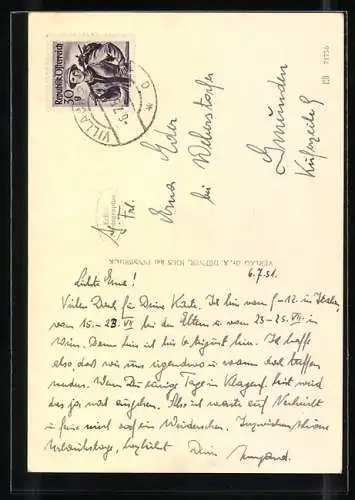 Republik Österreich
30 g
VILLA
-6.7.
71756
Frl.
Erna Eder
bei Weberstorfer
Gmunden
VERLAG Dr. A. DEFNER, IGLS bei INNSBRUCK
6.7.51.
Liebste Erna!
Vielen Dank für Deine Karte. Ich bin vom 9-12. in Italien,
vom 15.-23. VII bei den Eltern u. vom 23-25. VII. in
Wien. Dann bin ich bis 6. August hier. Ich hoffe
also, dass wir uns irgendwo u. wann doch treffen
werden. Wenn Du einige Tage in Klagenf. bist wird
das ja wohl gehen. Also ich warte auf Nachricht
u. freue mich auf ein Wiedersehen. Inzwischen schöne
Urlaubstage, herzlichst Dein